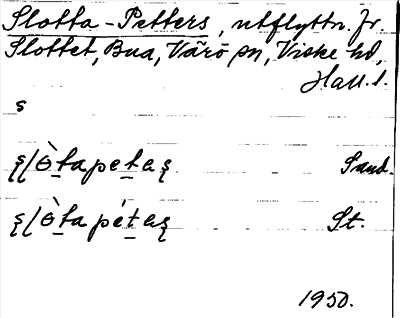 Slotta-Petters, utflyttn. fr.
Slottet, Bua, Värö sn, Viske hd,
Hall. l.
s
ʂlò̱tapeṯaʂ Sand.
ʂlò̱tapéṯaʂ St.
1950.